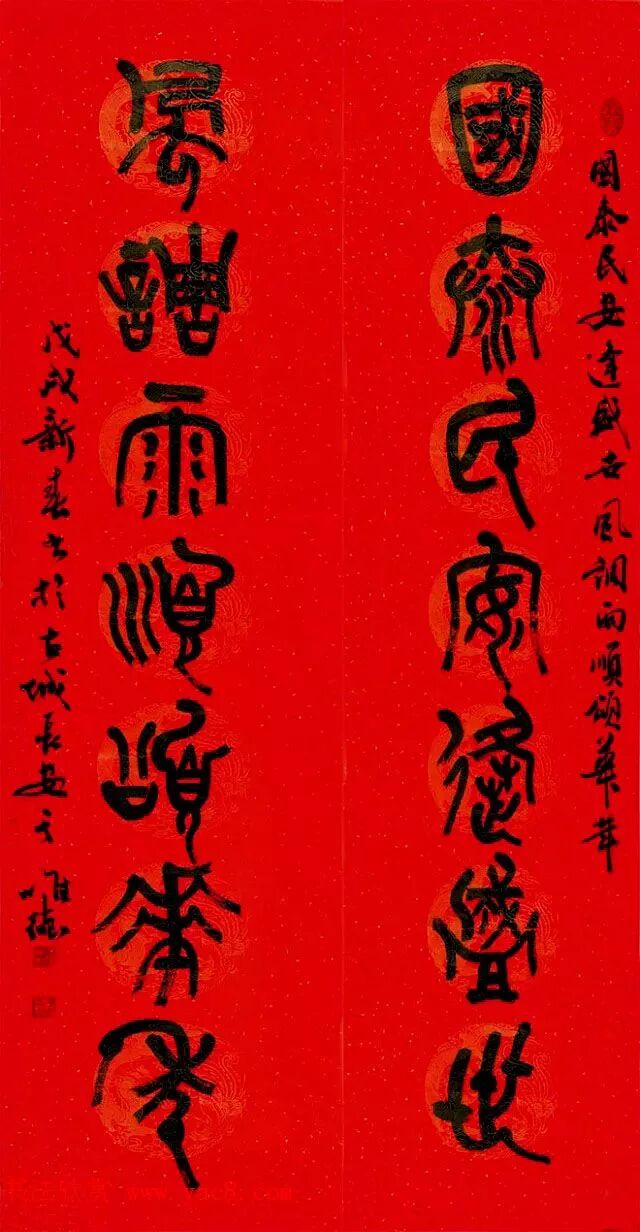 国泰民安逢盛世风调雨順頌華年
國泰民安逢盛世
風調雨順頌華年
戊戌新春书於古城長安
唯德